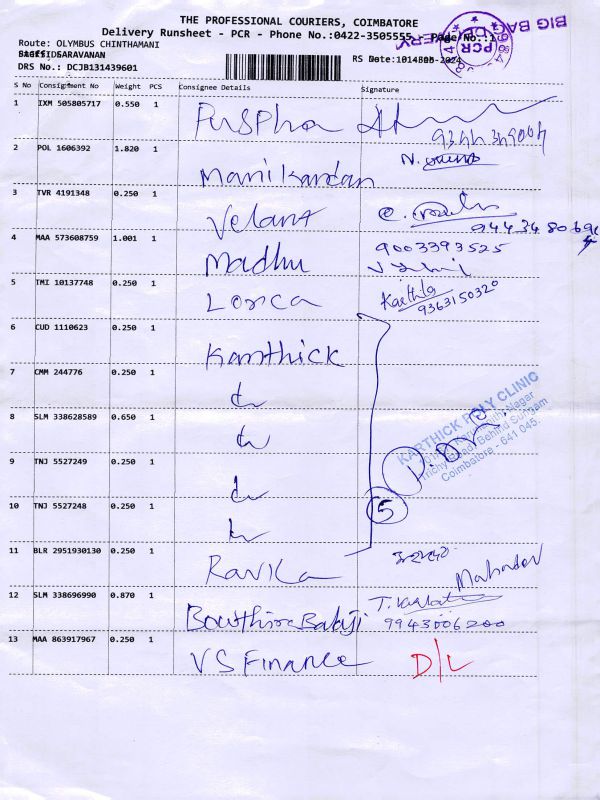 THE PROFESSIONAL COURIERS, COIMBATORE
Delivery Runsheet - PCR - Phone No.:0422-3505555 Page No.:1
BIG BAG DELIVERY
PCR
Route: OLYMPUS CHINTHAMANI
SARAVANAN
DRS No.: DCJB131439601
S No Consignment No Weight PCS Consignee Details Signature
1 IXM 505805717 0.550 1 Puspha
2 POL 1606392 1.820 1 Manikandan
3 TVR 4191348 0.250 1 Velant
9443480696
4 MAA 573608759 1.001 1 Madhu 9003393525
5 TMI 10137748 0.250 1 Lorica Karthika
9363150320
6 CUD 1110623 0.250 1 Karthick
7 CMM 244776 0.250 1
KARTHICK POLY CLINIC
Trichy Road, Behind Sungam
Coimbatore - 641 045.
8 SLM 338628589 0.650 1
9 TNJ 5527249 0.250 1
10 TNJ 5527248 0.250 1
5
11 BLR 2951930130 0.250 1 Mahadev
12 SLM 338696990 0.870 1 Bowthira Balaji
9943006200
13 MAA 863917967 0.250 1 VS Finance D/L